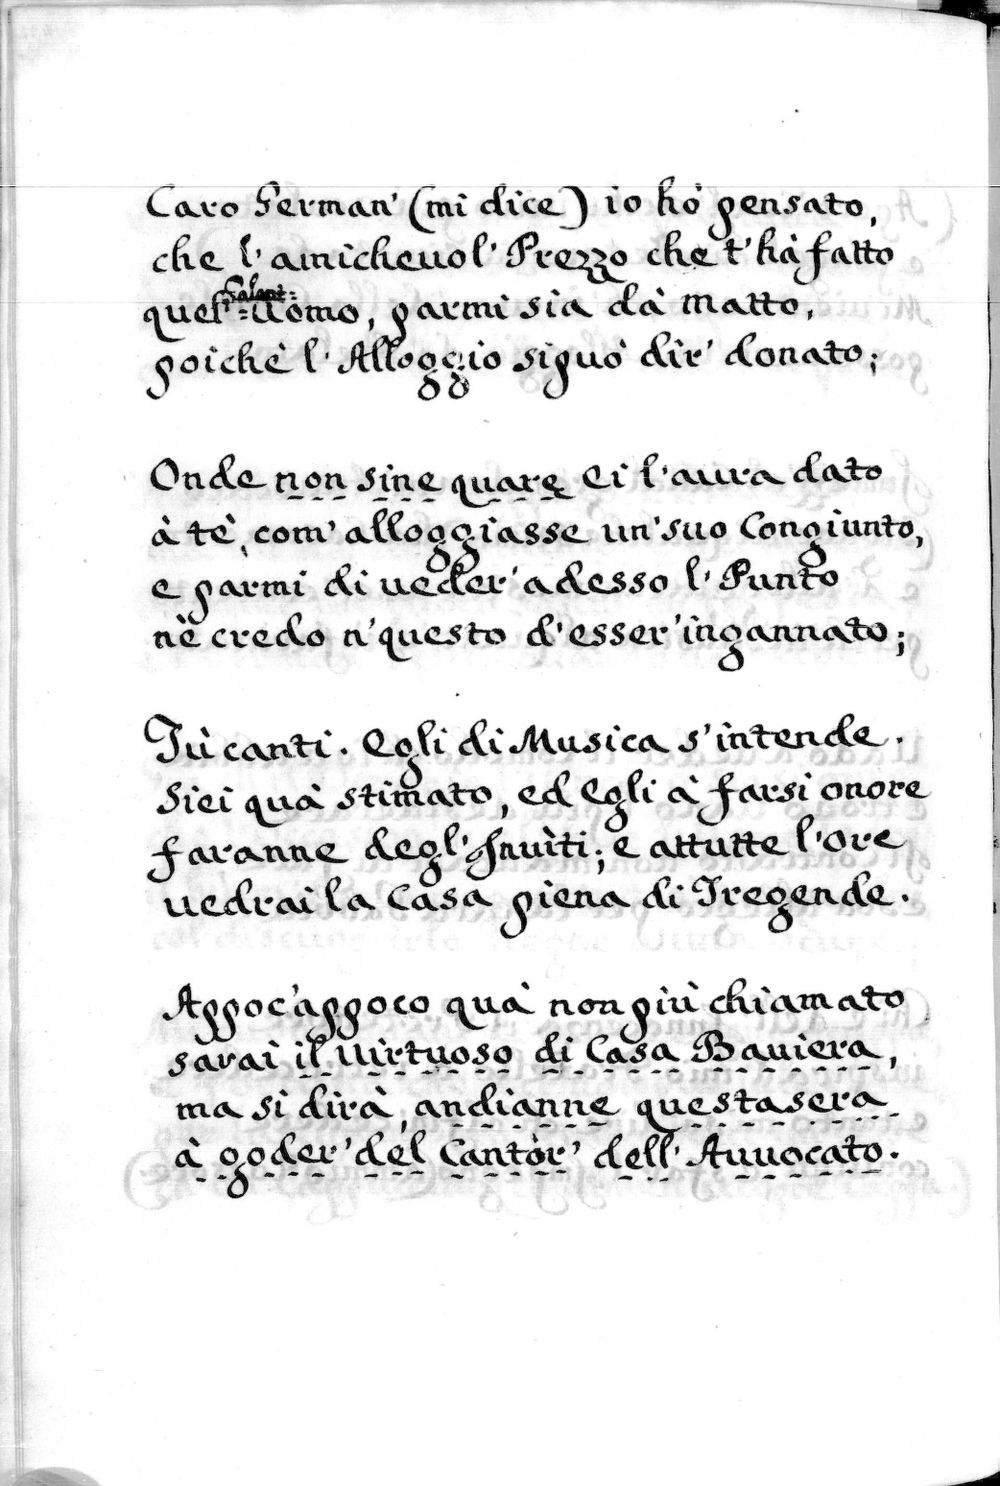 Caro German' (mi dice) io hò pensato,
che l'amicheuol' Prezzo che t'hà fatto
quel Galant=uomo, parmi sia dà matto,
poichè l'Alloggio si può dir' donato;
Onde non sine quare ei l'aura dato
à tè, com' alloggiasse un' suo Congiunto,
e parmi di ueder' adesso l' Punto
nè credo n' questo d'esser' ingannato;
Tù canti. Egli di Musica s'intende.
Siei quà stimato, ed Egli à farsi onore
faranne degl' Inuiti; e attutte l'ore
uedrai la Casa piena di Tregende.
Appoc'appoco quà non più chiamato
sarai il uirtuoso di Casa Bauiera,
ma si dirà, andianne questa sera
à goder' del Cantòr' dell' Auuocato.